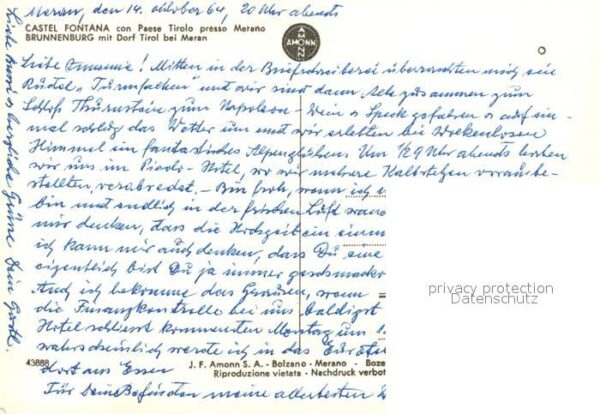 Meran, den 14. oktober 64, 20 Uhr abends
CASTEL FONTANA con Paese Tirolo presso Merano
BRUNNENBURG mit Dorf Tirol bei Meran
AMONN
Liebe Annemie! Mitten in der Briefschreiberei überraschten mich ein
Rudel "Turmfalken" und wir sind dann Alle zusammen zum
Schloß Thurnstein zum Napoleon-Wein u Speck gefahren u auf ein-
mal schlug das Wetter um und wir erlebten bei wolkenlosem
Himmel ein fantastisches Alpenglühen. Um 1/2 9 Uhr abends haben
wir uns im Hotel, wo wir mehrere Kalbshaxen vorausbe-
stellten, verabredet. - Bin froh, wenn ich
bin und endlich in der frischen Luft
mir denken, dass die Hochzeit ein
ich kann mir auch denken, dass Du eine
eigentlich bist Du ja immer geschmackvo
Auch ich bekomme das Grausen, wenn
die Finanzkontrolle bei uns baldigst
Hotel schliesst kommenden Montag um
wahrscheinlich werde ich in das
43888
J. F. Amonn S. A. - Bolzano - Merano - Boze
Riproduzione vietata - Nachdruck verbot
dort aus Essen
Für Dein Befinden meine allerbesten
herzliche Grüsse Dein
privacy protection
Datenschutz